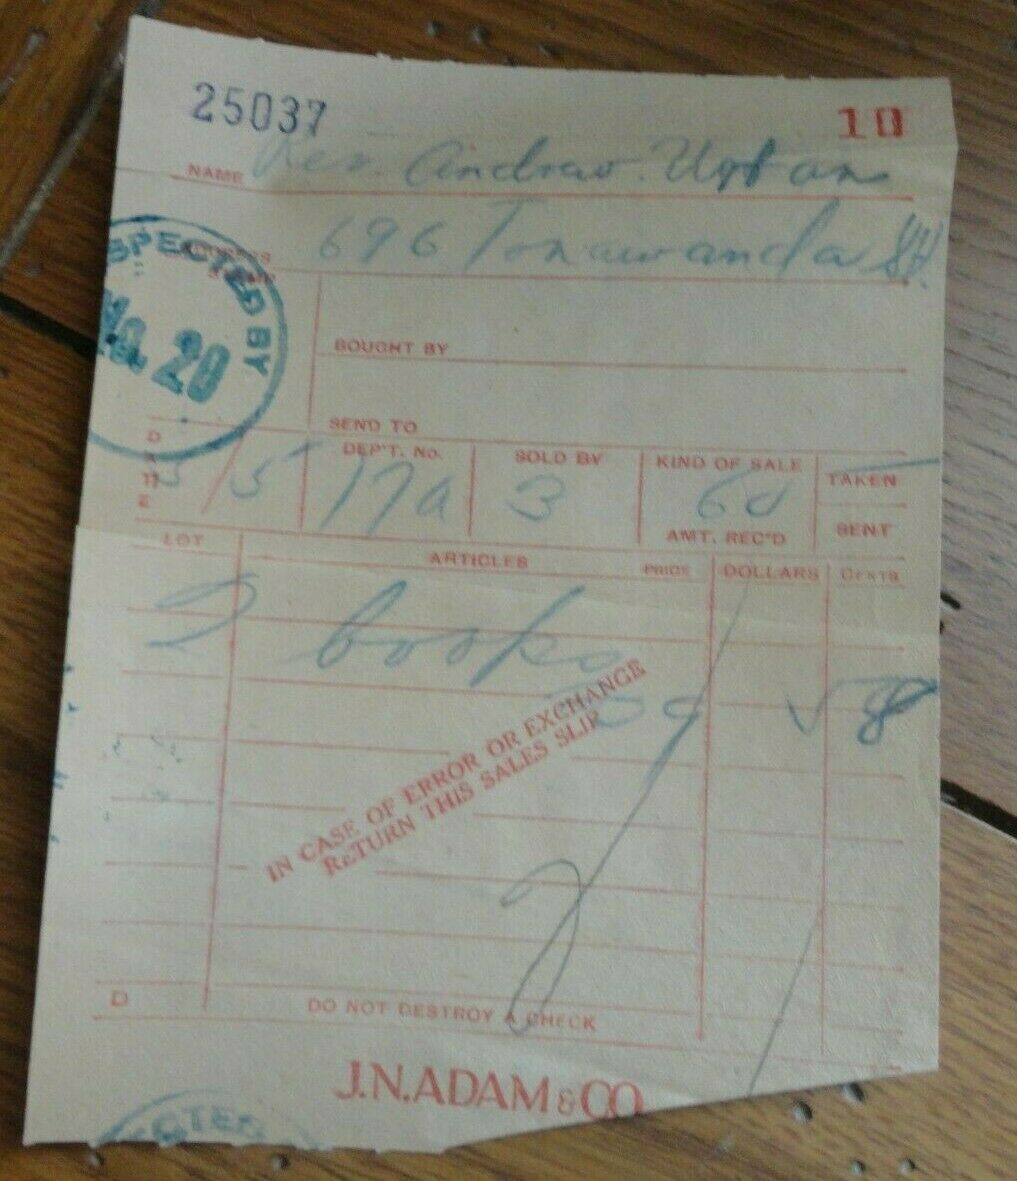 25037 10
NAME Rev. Andrew Urban
696 Tonawanda St.
SPECTED BY
NO. 20
BOUGHT BY
SEND TO
DATE 5/5 DEP'T. No. 17a SOLD BY 3 KIND OF SALE TAKEN
AMT. REC'D SENT
LOT ARTICLES PRICE DOLLARS CENTS
2 books
58
IN CASE OF ERROR OR EXCHANGE
RETURN THIS SALES SLIP
D DO NOT DESTROY A CHECK
J.N.ADAM & CO.
ECTED